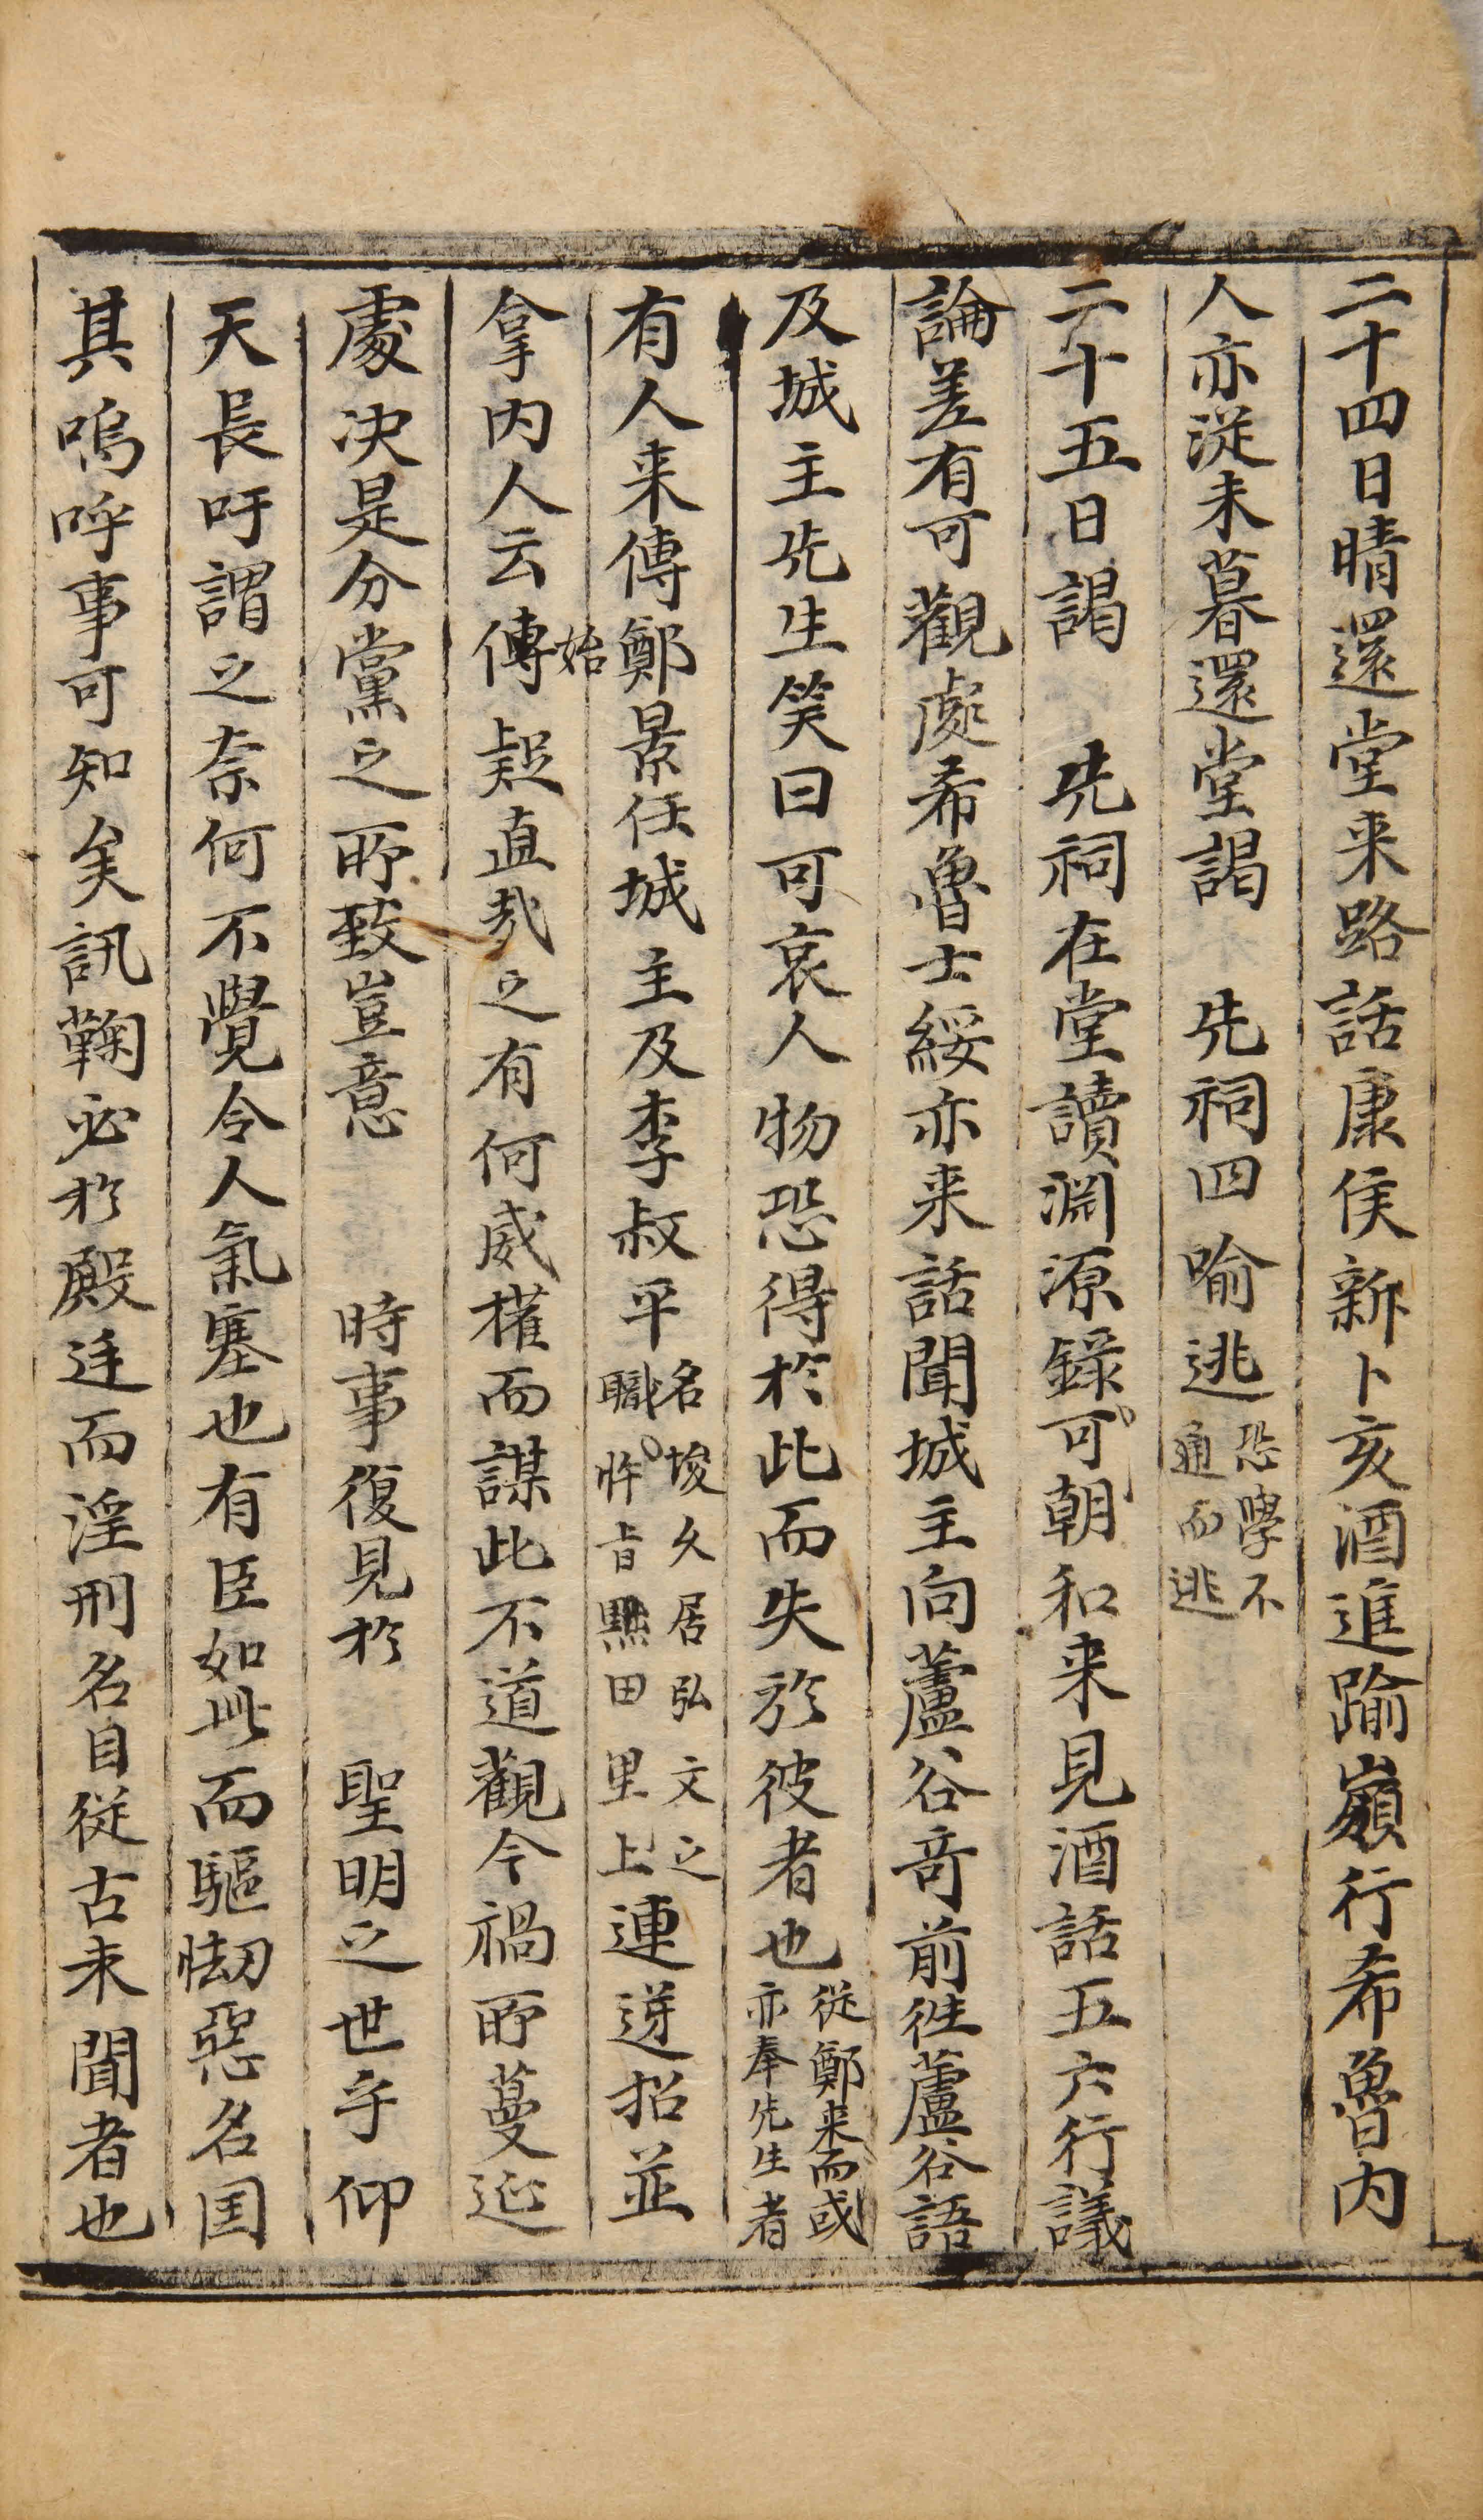 二十四日晴還堂来路話康侯新卜亥酒進踰嶺行希魯内
人亦従未暮還堂謁 先祠四喻逃恐學不通而逃
二十五日謁 先祠在堂讀淵源錄可朝和来見酒話五六行議
論差有可觀處希魯士綏亦来話聞城主向蘆谷竒前徃蘆谷語
及城主先生笑曰可哀人物恐得於此而失於彼者也従鄭来而或亦奉先生者
有人来傳鄭景任城主及李叔平名埈久居弘文之職忤旨黜田里上連逆招並
拿内人云傳始疑直㦲之有何威權而謀此不道觀今禍所蔓延
處决是分黨之所致豈意 時事復見於 聖明之世乎仰
天長吁謂之奈何不覺令人氣塞也有臣如此而驅㤼惡名国
其嗚呼事可知矣訊鞠必於殿廷而淫刑名目従古未聞者也